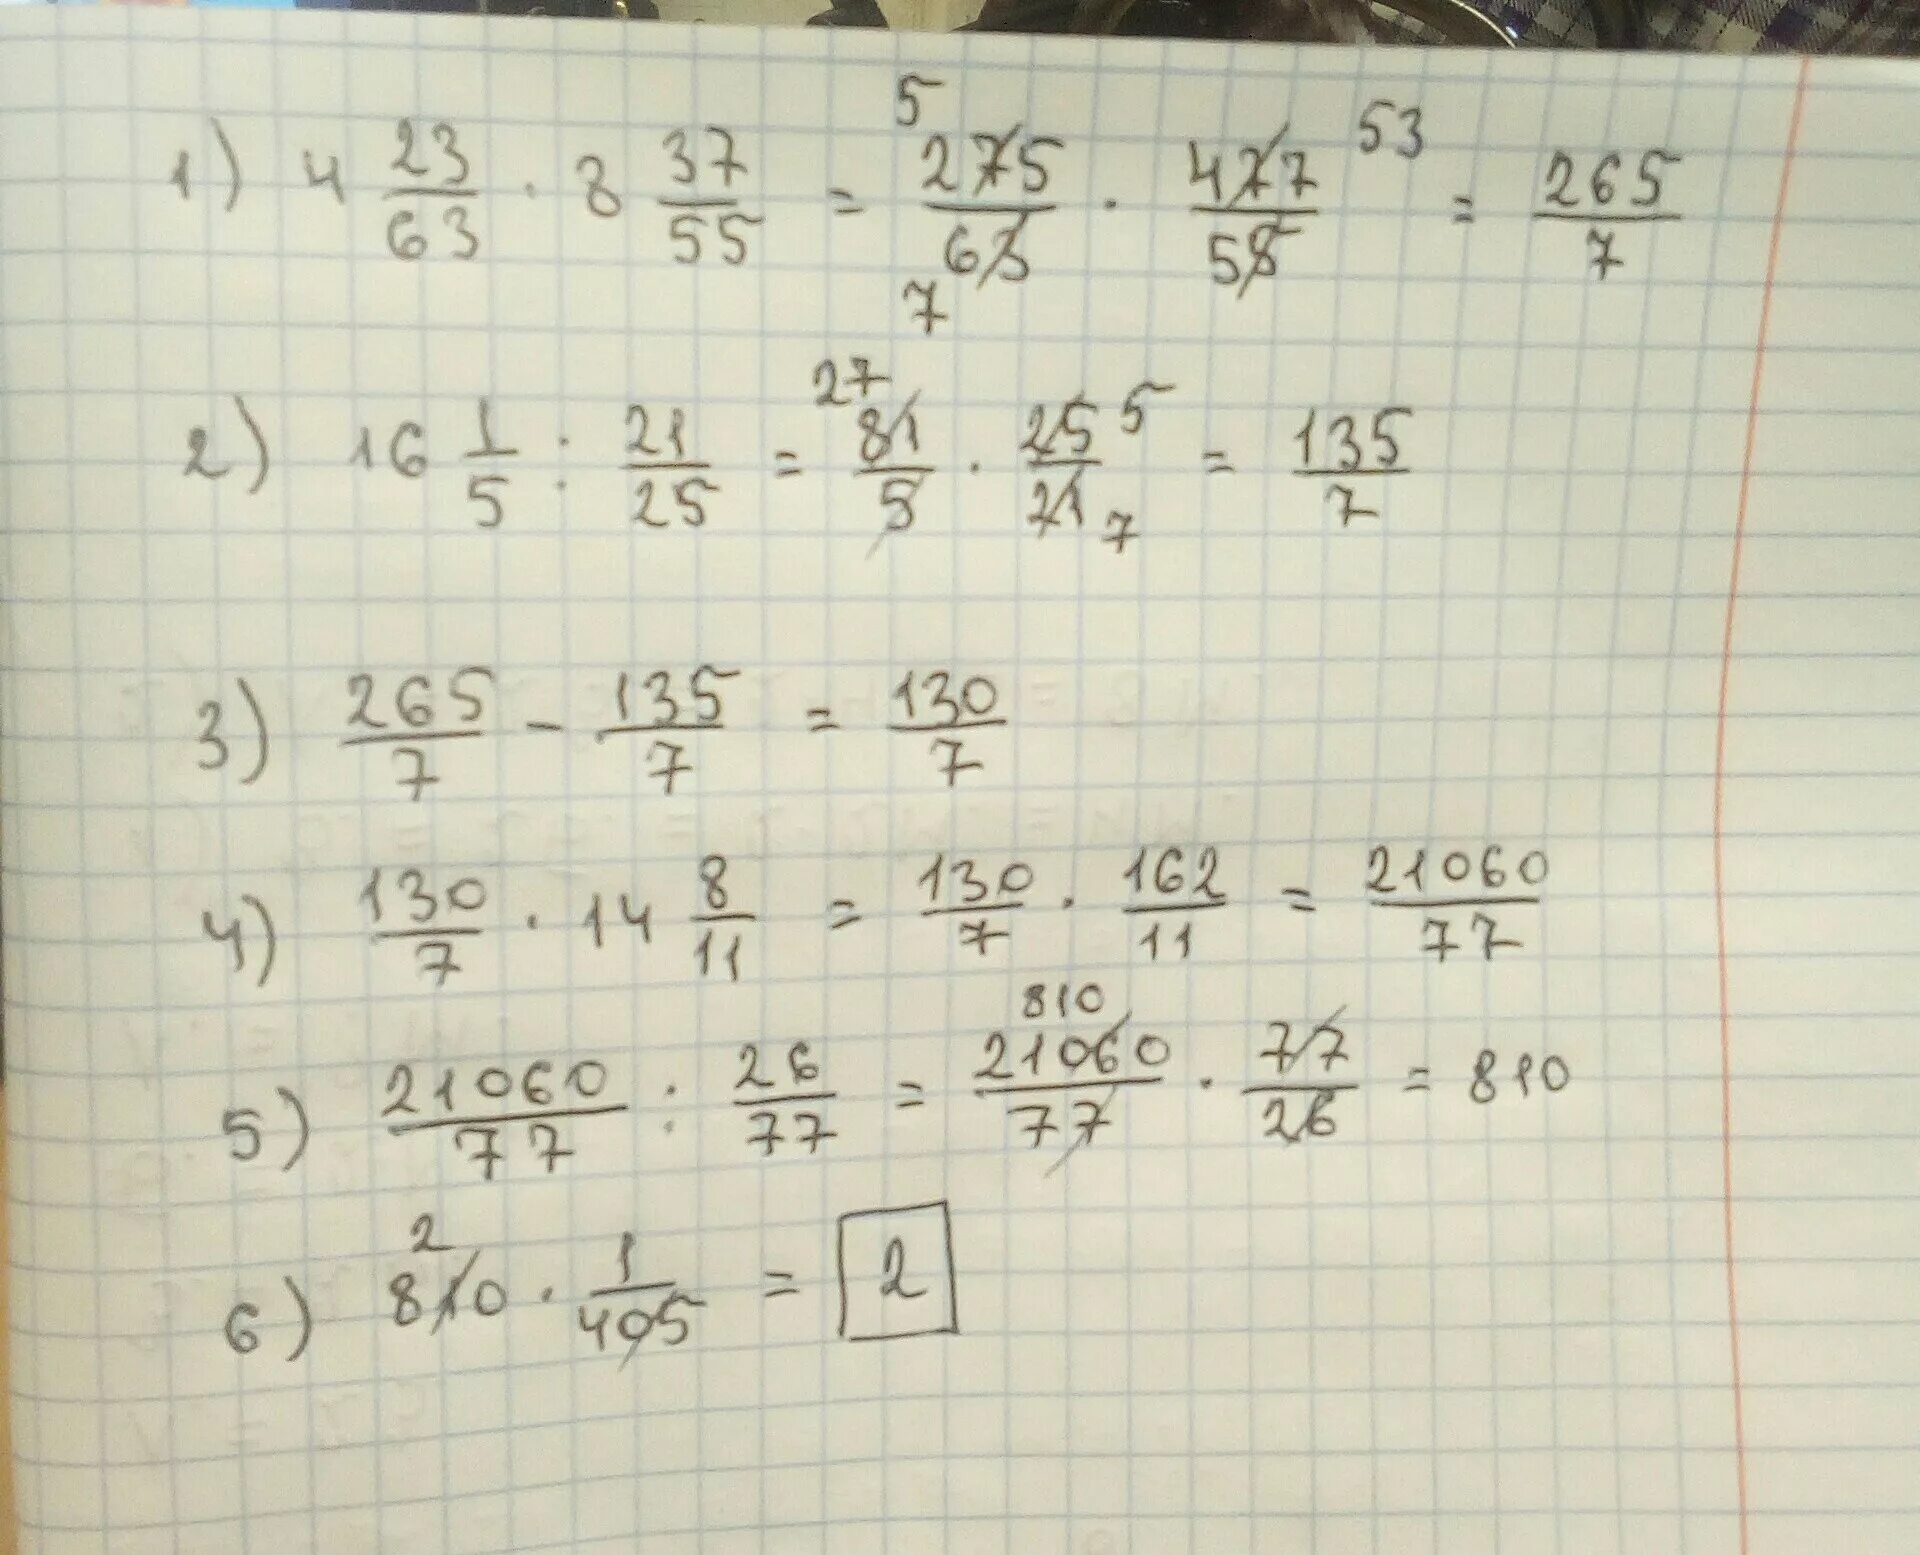 1) 4 23/63 · 8 37/55 = 275/63 · 477/55 = 265/7 (5, 7, 53)
2) 16 1/5 : 21/25 = 81/5 · 25/21 = 135/7 (27, 5, 7)
3) 265/7 - 135/7 = 130/7
4) 130/7 · 14 8/11 = 130/7 · 162/11 = 21060/77
5) 21060/77 : 26/77 = 21060/77 · 77/26 = 810 (810)
6) 810 · 1/405 = 2 (2)